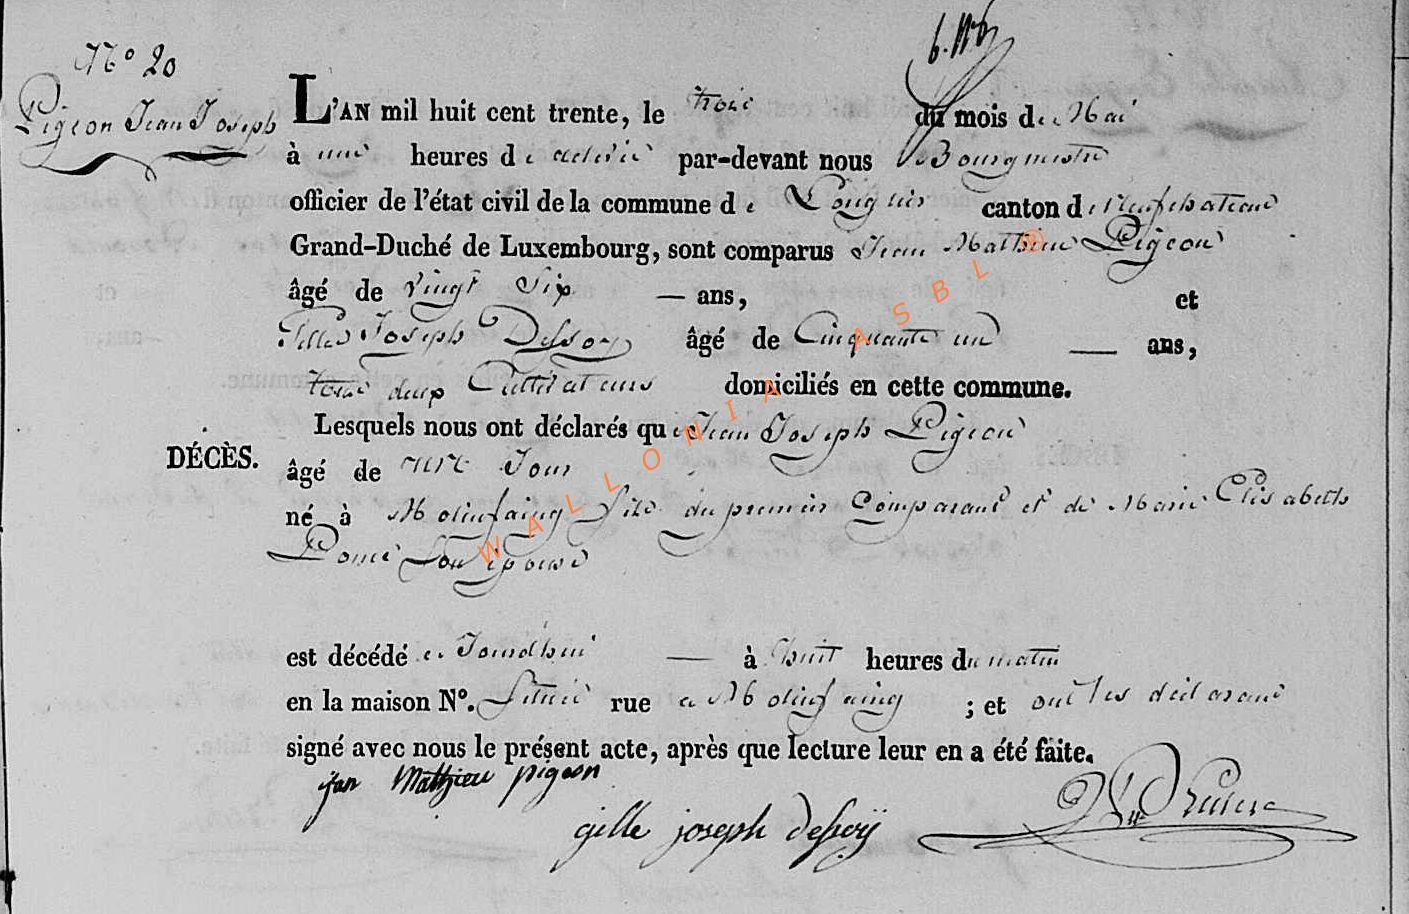 N° 20
Pigeon Jean Joseph
L'AN mil huit cent trente, le trois du mois de Mai
à une heures de relevée par-devant nous Bourgmestre
officier de l'état civil de la commune de Longlier canton de Neufchateau
Grand-Duché de Luxembourg, sont comparus Jean Mathieu Pigeon
âgé de vingt Six — ans, et
Gilles Joseph Dessoy âgé de Cinquante un — ans,
tous deux Cultivateurs domiciliés en cette commune.
Lesquels nous ont déclarés que Jean Joseph Pigeon
DÉCÈS.
âgé de un Jour
né à Molinfaing fils du premier Comparant et de Marie Elisabeth
Poncé Son épouse
est décédé ce Jourdhui — à huit heures du matin
en la maison N°. Située rue a Molinfaing ; et ont les déclarans
signé avec nous le présent acte, après que lecture leur en a été faite.
jan Mathieu pigeon
gille joseph dessoÿ
WALLONIA ASBL ®